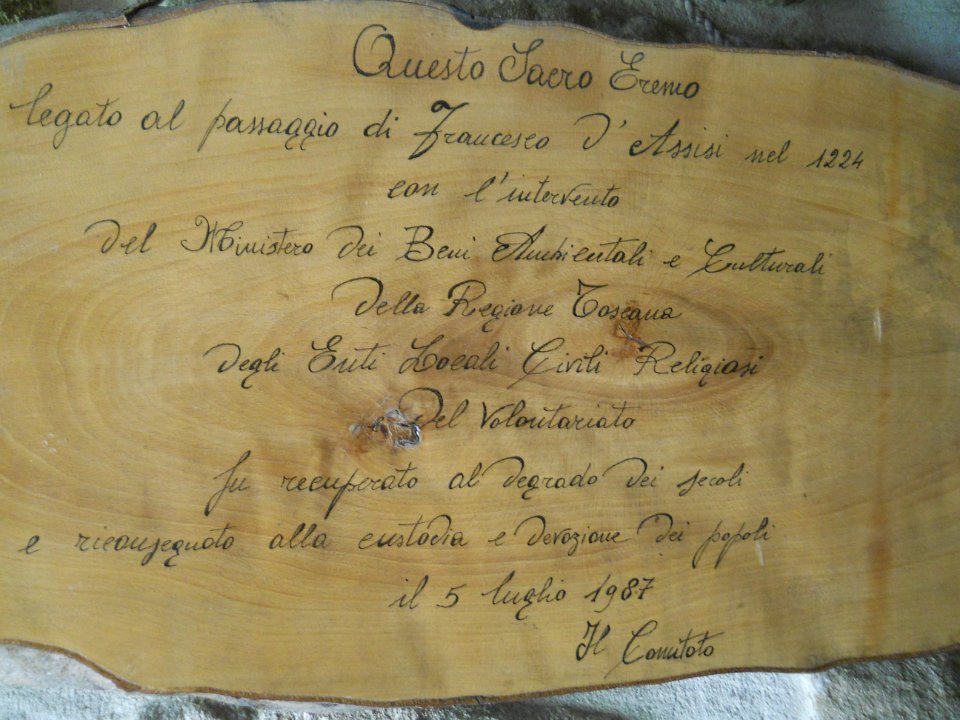 Questo Sacro Eremo
legato al passaggio di Francesco d'Assisi nel 1224
con l'intervento
del Ministero dei Beni Ambientali e Culturali
della Regione Toscana
degli Enti Locali Civili Religiosi
e del Volontariato
fu recuperato al degrado dei secoli
e riconsegnato alla custodia e devozione dei popoli
il 5 luglio 1987
Il Comitato